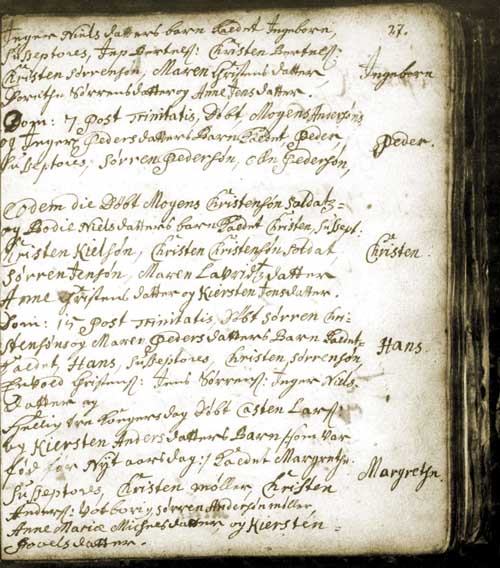 Inger Niels datters barn kaedet Ingeborn,
Susseptores, Jep Bertels: Christen Bertels:
Christen Sørrenson, Maren Christens datter
Sørrens datter og Anne Jens datter.
27.
Ingeborn
Dom: 7 Post Trinitatis, Døbt Mogens Andersøns
og Inger Peders datters Barn kaedet Peder,
Susseptores, Sørren Pedersøn, Pederson,
Peder.
Eodem die Døbt Mogens Christenson Saldatz=
og Bodie Niels datters barn kaedet Christen, Sussept:
Christen Kielsøn, Christen Christensøn Soldat,
Sørren Jenson, Maren Lavridtz datter
Anne Christens datter og Kiersten Jensdatter.
Christen
Dom: 15 Post Trinitatis, Døbt Sørren Chri-
stensøns og Maren Peders datters Barn kaedet=
kaedet, Hans, Susseptores, Christen, Sørrensøn
Christens: Jens Sørrens: Inger Niels
Datter og
Hans.
Hellig tre Kongersdag Døbt Casten Lars:
og Kiersten Anders datters Barn /:som var
fød før Nyt aarsdag:/ kaedet Margretha.
Susseptores, Christen møller, Christen
Anders: Sørren Andersøn møller,
Anne Maria Michels datter, og Kiersten=
Povels datter.
Margretha.